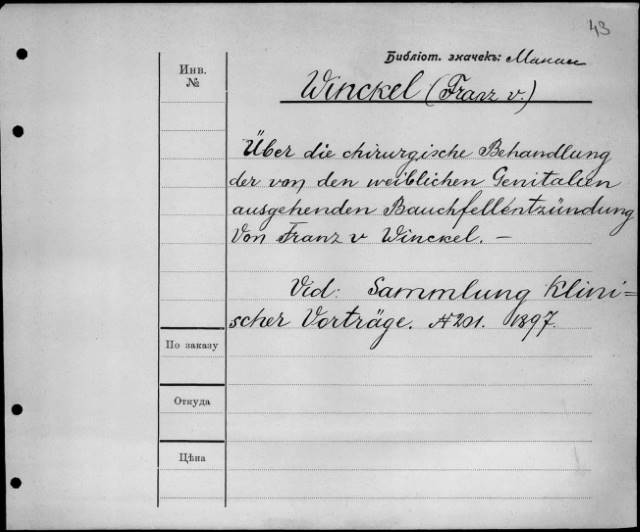 43
Библіот. значекъ:
Инв. №
Winckel (Franz v.)
Über die chirurgische Behandlung
der von den weiblichen Genitalien
ausgehenden Bauchfellentzündung
Von Franz v Winckel. –
Vid: Sammlung Klini=
scher Vorträge. N201. 1897.
По заказу
Откуда
Цѣна